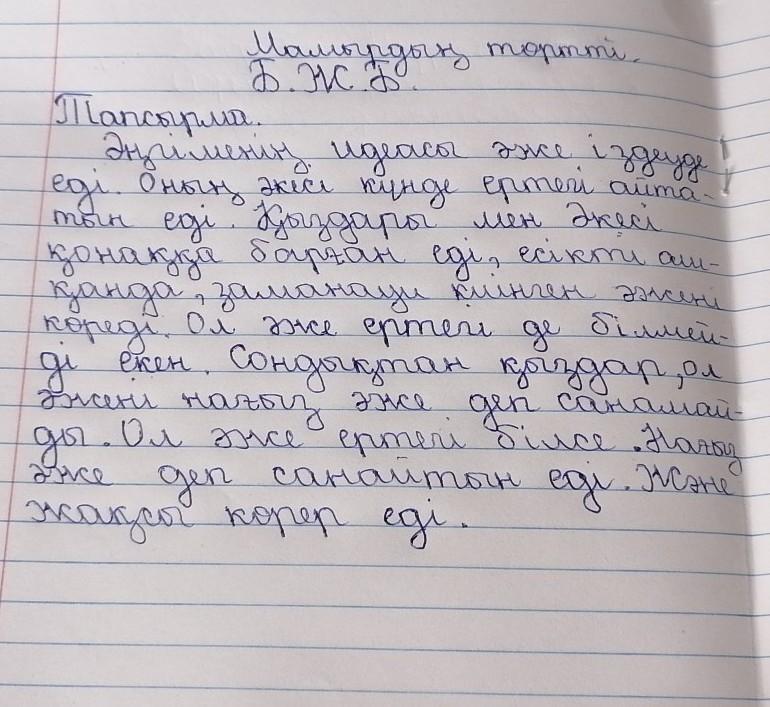 Мамырдың төртті.
Б.Ж.Б.
Тапсырма.
Әңгіменің идеасы әже іздеуде
еді. Оның әкесі күнде ертегі айта-
тын еді. Қыздары мен Әкесі
қонаққа барған еді, есікті аш-
қанда, заманауи киінген әжені
көреді. Ол әже ертегі де білмей-
ді екен. Сондықтан қыздар, ол
әжені нағыз әже деп санамай-
ды. Ол әже ертегі білсе. Нағыз
әже деп санайтын еді. Және
жақсы көрер еді.